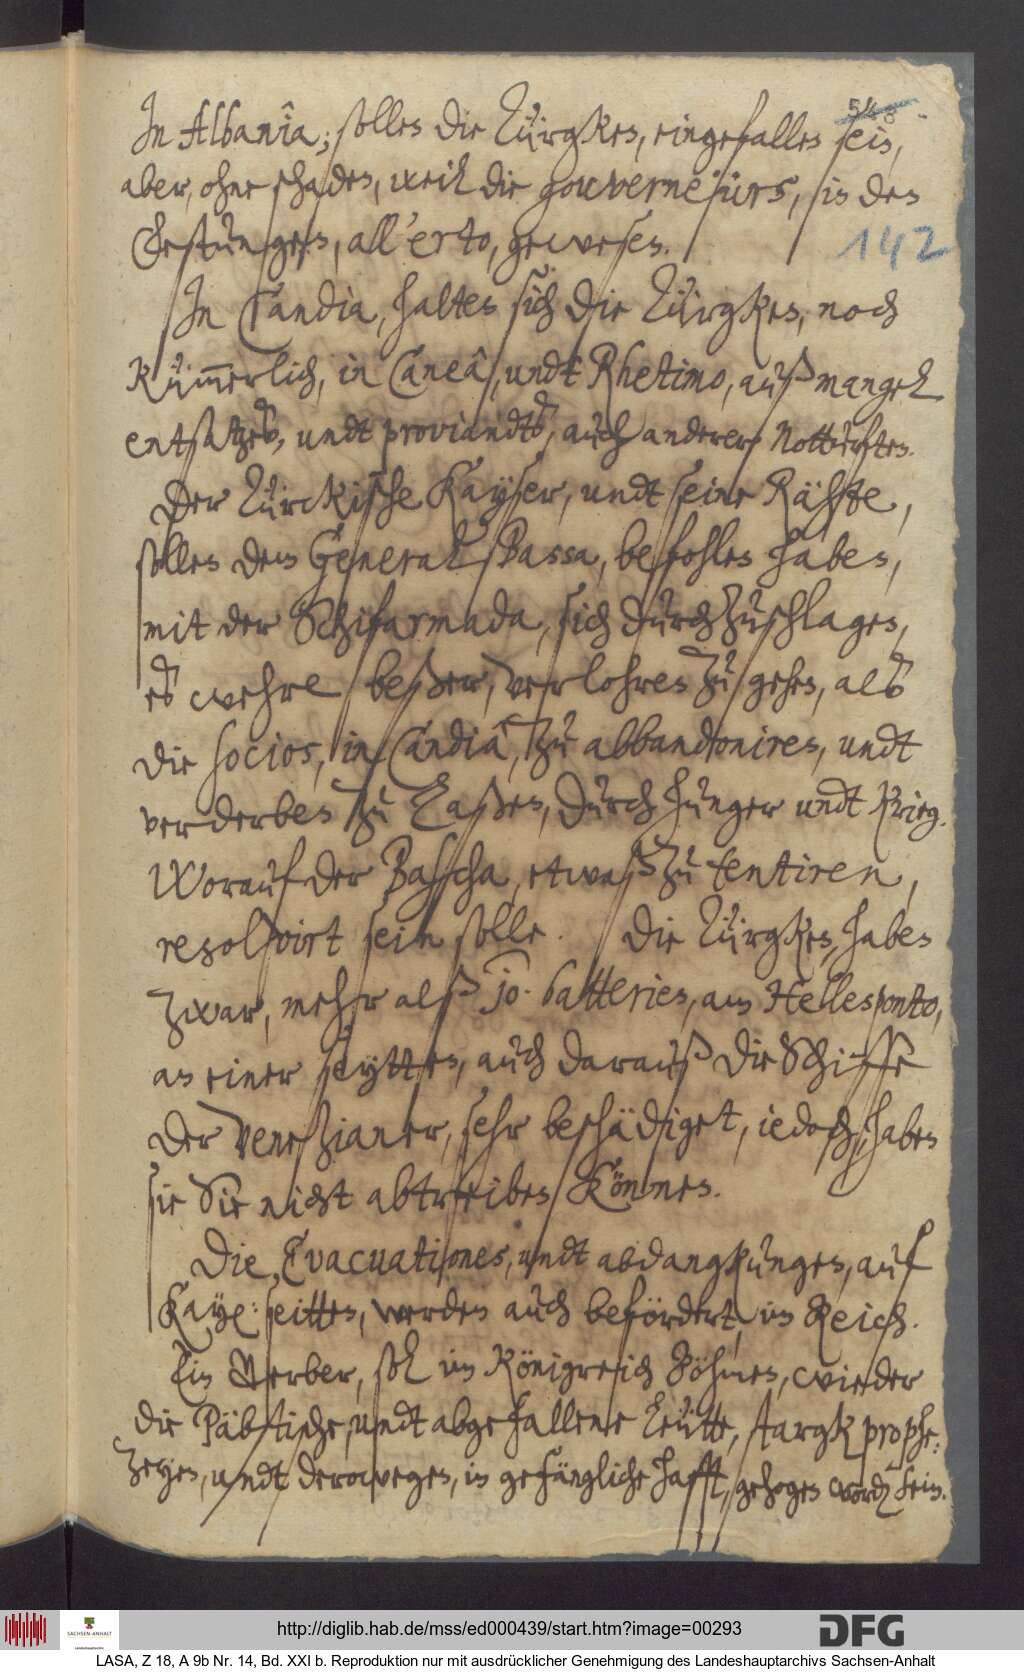 548
In Albanîa; sollen die Türgken, eingefallen sein,
aber, ohne schaden, weil die gouverneiurs, in den
Vestungen, all'erto, gewesen.
142
In Candia, halten sich die Türgken, noch
kümmerlich, in Caneâ, undt Rhetimo, auß mangel
entsatzes, undt proviandts, auch anderer Notturften.
Der Türckische Kayser, undt seine Rähte,
sollen dem General Bassa, befohlen haben,
mit der Schifarmada, sich durchzuschlagen,
es wehre beßer, verlohren zu gehen, als
die socios, in Candia, zu abbandoniren, undt
verderben zu laßen, durch hunger undt Krieg.
Worauf der Bascha, etwaß zu tentiren,
resolvirt sein solle. Die Türgken, haben
zwar, mehr alß 30. batterien, am Hellesponto,
an einer seytten, auch darauß die Schiffe
der Venezianer, sehr beschädiget, iedoch, haben
sie Sie nicht abtreiben können.
Die Evacuationes, undt abdangkungen, auf
Kay: seitten, werden auch befördert, im Reich.
Ein Werber, sol im Königreich Böhmen, wieder
die Päbstische, undt abgefallene leütte, stargk prophe:
zeyen, undt deroweg en, in gefängliche hafft, gezogen word sein.
http://diglib.hab.de/mss/ed000439/start.htm?image=00293
SACHSEN-ANHALT
DFG
LASA, Z 18, A 9b Nr. 14, Bd. XXI b. Reproduktion nur mit ausdrücklicher Genehmigung des Landeshauptarchivs Sachsen-Anhalt